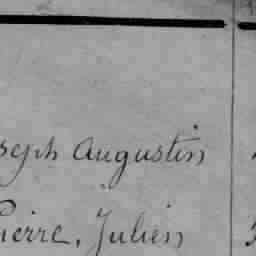 seph Augustin
Pierre, Julien